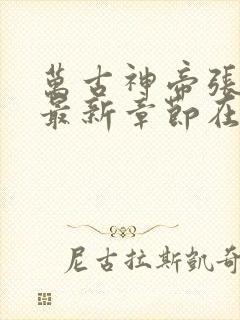 萬古神帝張
最新章節在
尼古拉斯凱奇